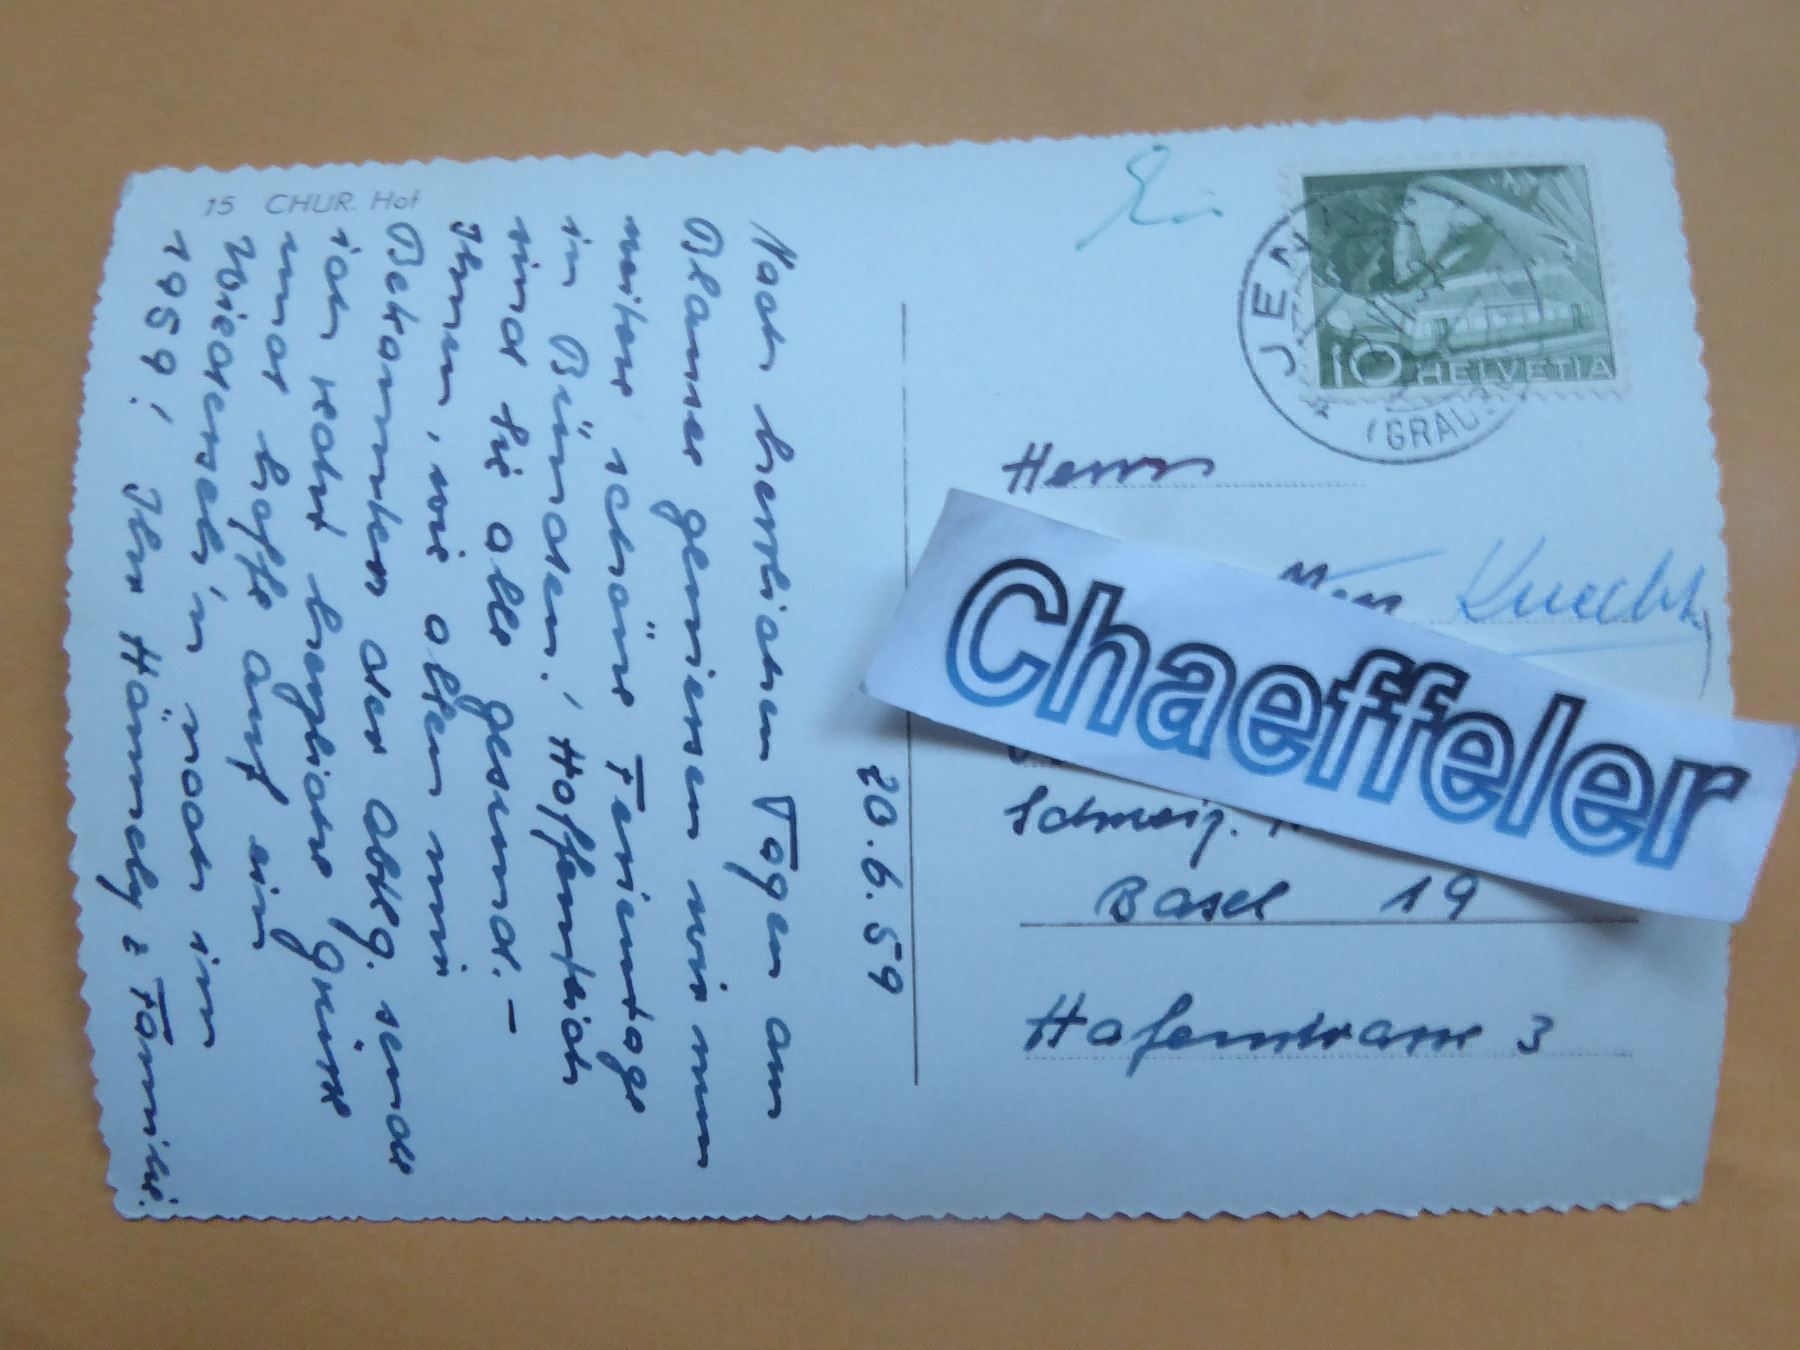 15 CHUR. Hof
Nach herrlichen Tagen am
Blauner geniessen wir nun
weitere schöne Ferientage
in Bünden! Hoffentlich
sind Sie alle gesund. –
Ihnen, wie allen mir
Bekannten der Abtlg. sende
ich recht herzliche Grüsse
und hoffe auf ein
Wiederseh'n noch im
1959! Ihr Hämmerly & Familie.
20.6.59
10 HELVETIA
JENA
(GRAU
Herrn
Knecht
Chaeffeler
Schweiz.
Basel 19
Hafenstrasse 3